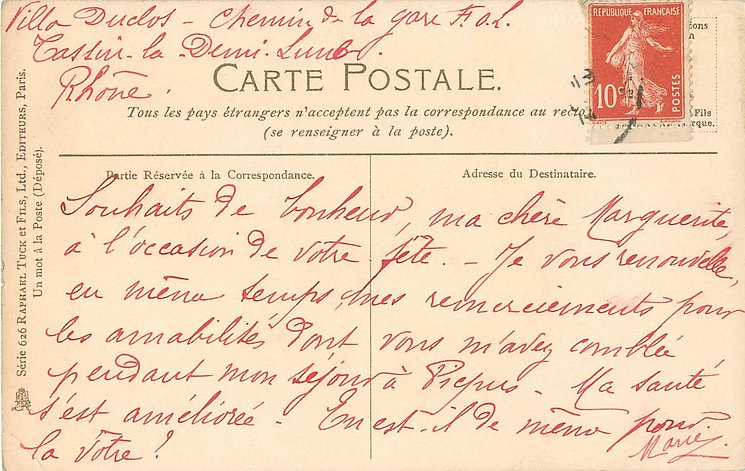 Villa Duclos - Chemin de la gare F.O.L.
Tassin-la-Demi-Lune
Rhône.
CARTE POSTALE.
Tous les pays étrangers n'acceptent pas la correspondance au recto
(se renseigner à la poste).
RÉPUBLIQUE FRANÇAISE
10c
POSTES
Fils
Partie Réservée à la Correspondance.
Adresse du Destinataire.
Souhaits de bonheur, ma chère Marguerite,
à l'occasion de votre fête. - Je vous renouvelle,
en même temps, mes remerciements pour
les amabilités dont vous m'avez comblée
pendant mon séjour à Picpus - Ma santé
s'est améliorée - En est-il de même pour
la vôtre!
Marie
Série 626 RAPHAEL TUCK et FILS, Ltd., EDITEURS, Paris.
Un mot à la Poste (Déposé).